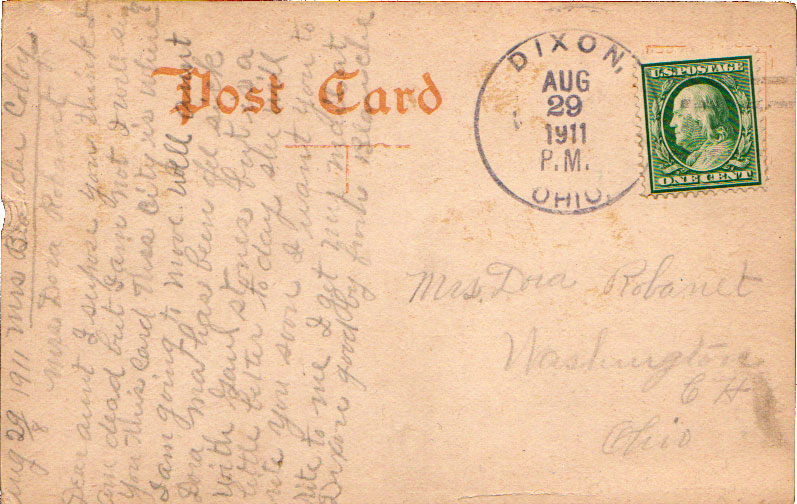 Post Card
DIXON,
AUG
29
1911
P.M.
OHIO.
U.S. POSTAGE
ONE CENT
Mrs. Dora Robanet
Washington
C H
Ohio
Aug 29 1911 Mrs Blanche Coby
Mrs Dora Robanet
Dear aunt I supose you think I
am dead but I am not I will si
you this card this City is where
I am going to move well aunt
Dora ma has been sick
with gaul stones but is a
little better to day she will
rite you soon I want you to
rite to me I get my mail at
Dixon good by from Blanche